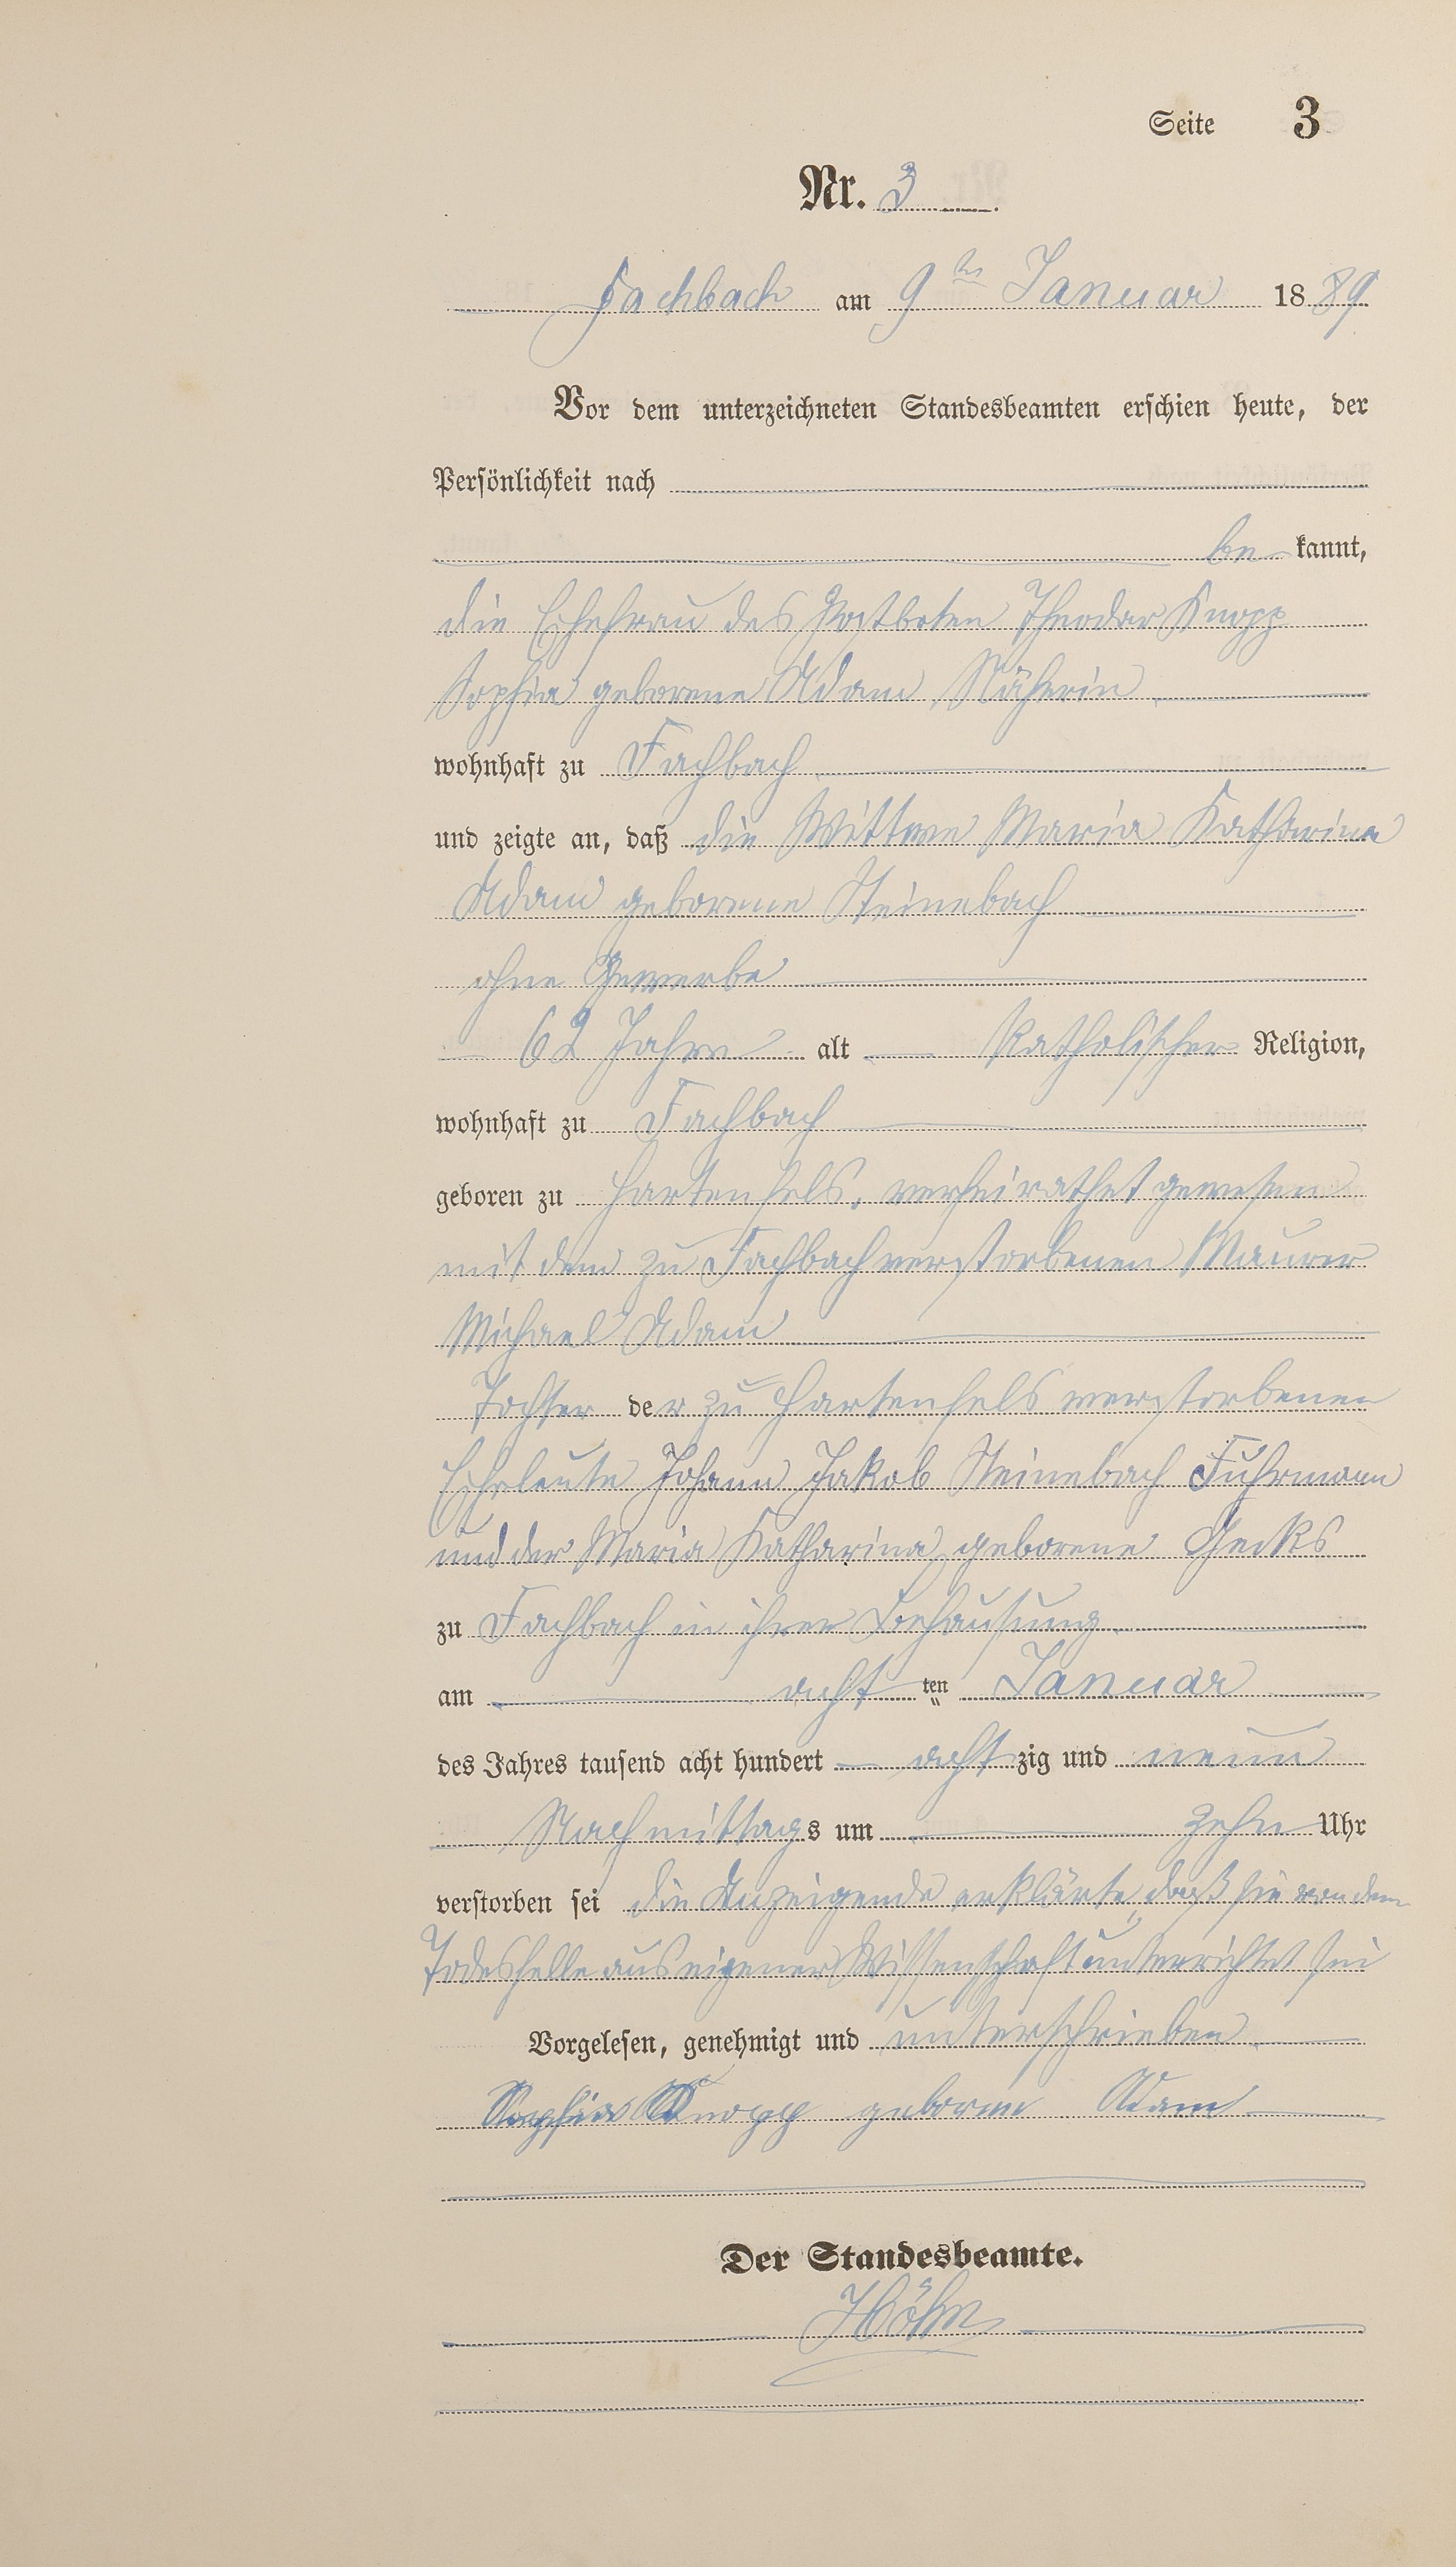 Seite 3
Nr. 3
Fachbach am 9ten Januar 1889
Vor dem unterzeichneten Standesbeamten erschien heute, der
Persönlichkeit nach
be kannt,
die Ehefrau des Postboten Theodor Knopp
Sophia geborene Adam, Näherin
wohnhaft zu Fachbach
und zeigte an, daß die Wittwe Maria Katharina
Adam geborene Steinebach
ohne Gewerbe
62 Jahre alt katholischer Religion,
wohnhaft zu Fachbach
geboren zu Hartenfels, verheirathet gewesen
mit dem zu Fachbach verstorbenen Maurer
Michael Adam
Tochter der zu Hartenfels verstorbenen
Eheleute Johann Jakob Steinebach Fuhrmann
und der Maria Katharina geborene
zu Fachbach in ihrer Behausung
am acht ten Januar
des Jahres tausend acht hundert acht zig und neun
Nachmittags um zehn Uhr
verstorben sei die Anzeigende erklärte, daß sie von dem
Todesfalle aus eigener Wissenschaft unterrichtet sei
Vorgelesen, genehmigt und unterschrieben
Sophia Knopp geborene Adam
Der Standesbeamte.
Höhn